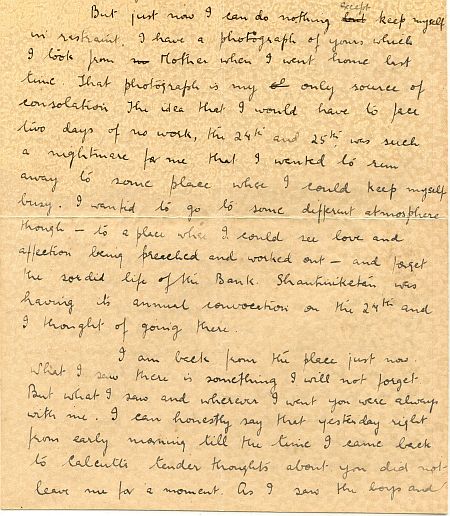 But just now I can do nothing but except keep myself
in restraint. I have a photograph of yours which
I took from Mother when I went home last
time. That photograph is my only source of
consolation. The idea that I would have to face
two days of no work, the 24th and 25th was such
a nightmare for me that I wanted to run
away to some place where I could keep myself
busy. I wanted to go to some different atmosphere
though – to a place where I could see love and
affection being preached and worked out – and forget
the sordid life of the Bank. Shantiniketan was
having its annual convocation on the 24th and
I thought of going there.
I am back from the place just now.
What I saw there is something I will not forget.
But what I saw and wherever I went you were always
with me. I can honestly say that yesterday right
from early morning till the time I came back
to Calcutta tender thoughts about you did not
leave me for a moment. As I saw the boys and